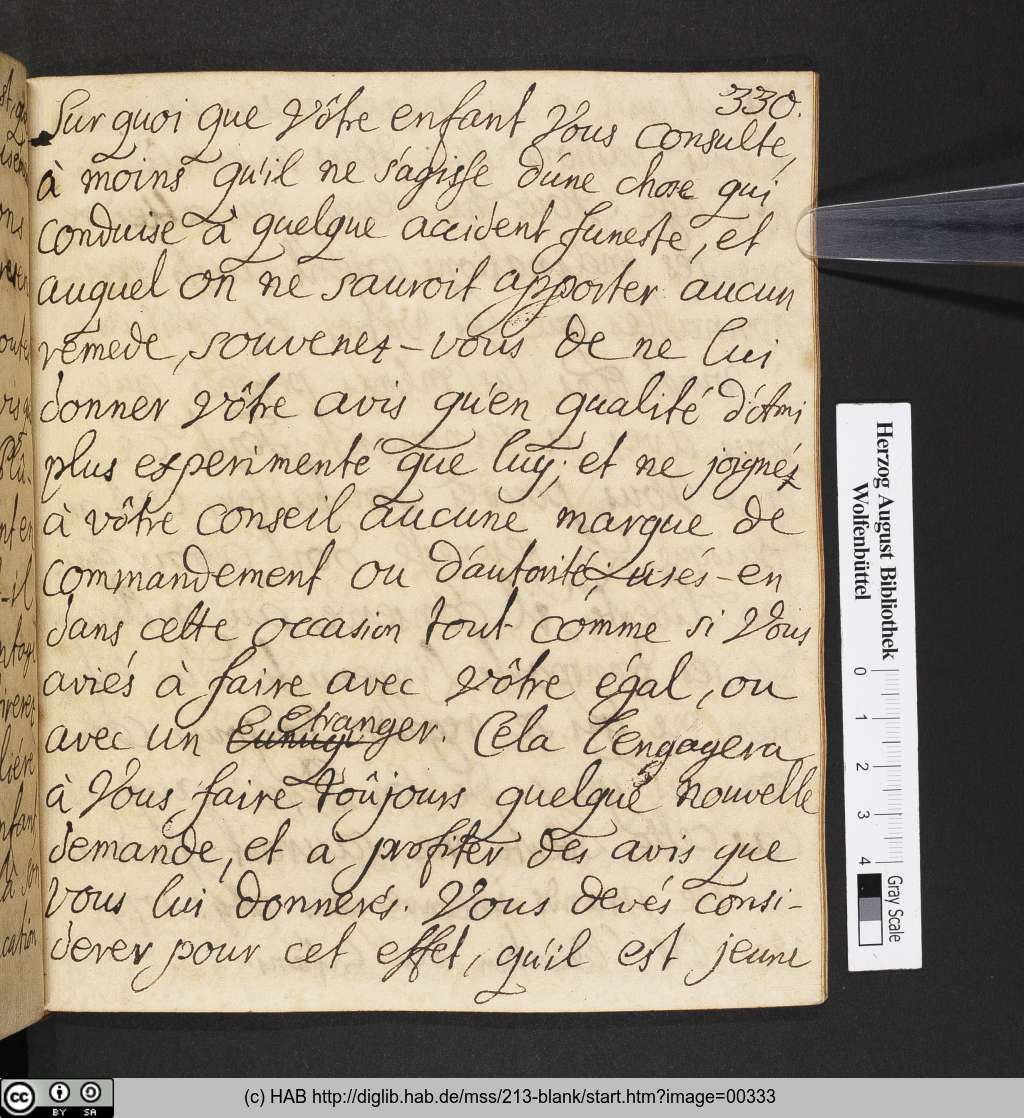 330.
Sur quoi que Vôtre enfant Vous consulte,
à moins qu'il ne s'agisse d'une chose qui
conduise à quelque accident funeste, et
auquel on ne sauroit apporter aucun
remede, souvenez-vous de ne lui
donner vôtre avis qu'en qualité d'Ami
plus experimenté que luy; et ne joignéz
à vôtre conseil aucune marque de
commandement ou d'autorité: usés-en
dans cette occasion tout comme si Vous
aviés à faire avec vôtre égal, ou
avec un etranger. Cela l'engagera
à Vous faire toûjours quelque nouvelle
demande, et a profiter des avis que
vous lui donnerés. Vous devés consi-
derer pour cet effet, qu'il est jeune
Herzog August Bibliothek
Wolfenbüttel
0 1 2 3 4
Gray Scale
cc BY SA
(c) HAB http://diglib.hab.de/mss/213-blank/start.htm?image=00333